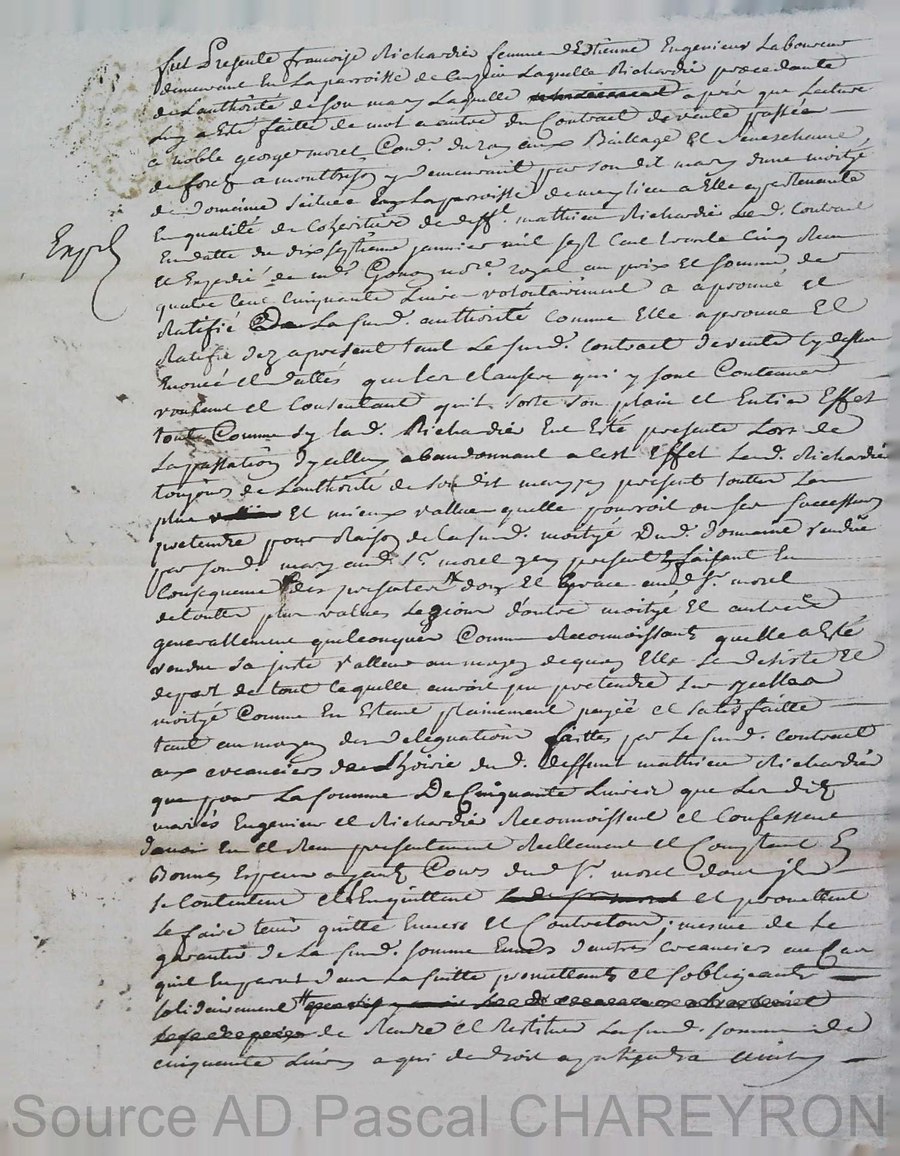 fut Presente francoise Richardié femme d'Etienne Engenieur Laboureur
demeurant En La parroisse de Laquelle Richardié procedante
de Lauthorité de son mary Laquelle apres que Lecture
Luy a Eté faitte de mot a autre du Contract de vente passée
a noble george morel Cons.r du roy aux Bailliage Et Seneschaucée
de forez a montbrison y demeurant par son dit mary d'une moityé
de Domeine scituée En La parroisse de meylieu a Elle appartenante
En qualité de Coheritiere de deff.t mathieu Richardié Led. Contract
En datte du dix septieme janvier mil sept Cent trente Cinq Reçu
Expel
et Expedié de me. Gonon not.e royal au prix Et somme de
quatre Cent Cinquante Livres volontairement a aprouvé et
Ratifié De La sud. authorité comme Elle aprouve Et
Ratifie dez apresent tant Le sud. contract de vente cy dessus
Enoncé et dattés que les clauses qui y sont Contenues
voulant et Consentant quil sorte son plain et Entier Effet
tout Comme sy lad. Richardié Eut Eté presente Lors de
La passation dycelluy abandonnant a cest Effet Lad. Richardié
toujours de Lauthorité de son dit mary present touttes La
plus Et mieux vallue quelle pouroit ou ses successeurs
pretendre pour Raison de La sud. moityé Dud. domaine vendue
par sond. mary aud. Sr. morel present faisant En
Consequence des presentes don Et Grace aud. Sr. morel
de toutte plus values Legion d'outre moityé Et autres
generallement quelconques Comme Reconnoissant quelle a Eté
vendue sa juste valleur au moyen dequoy Elle se desiste Et
depart de tout ce quelle auroit pu pretendre sur ycelle
moityé Comme En Estant plainement payée et satisfaitte
tant au moyen des delegations faittes par Le sud. contract
aux creanciers de L'hoirie dud. deffunt mathieu Richardié
que pour La somme De Cinquante Livres que Les dits
mariés Engenieur et Richardié Reconnoissent et Confessent
davoir Eu et Reçu presentement Reellement et Comptant En
Bonnes Especes ayant Cours dud. Sr. morel dont jls
se Contentent et L'Enquittent et promettent
Le faire tenir quitte Envers Et Contre tous; mesme de Le
garantir de La sud. somme Envers d'autres creanciers au Cas
quil En parut dans La suitte promettants et sobligeants
solidairement
de Rendre et Restituer La sud. somme de
cinquante Livres a qui de droit apartiendra ainsy
Source AD Pascal CHAREYRON